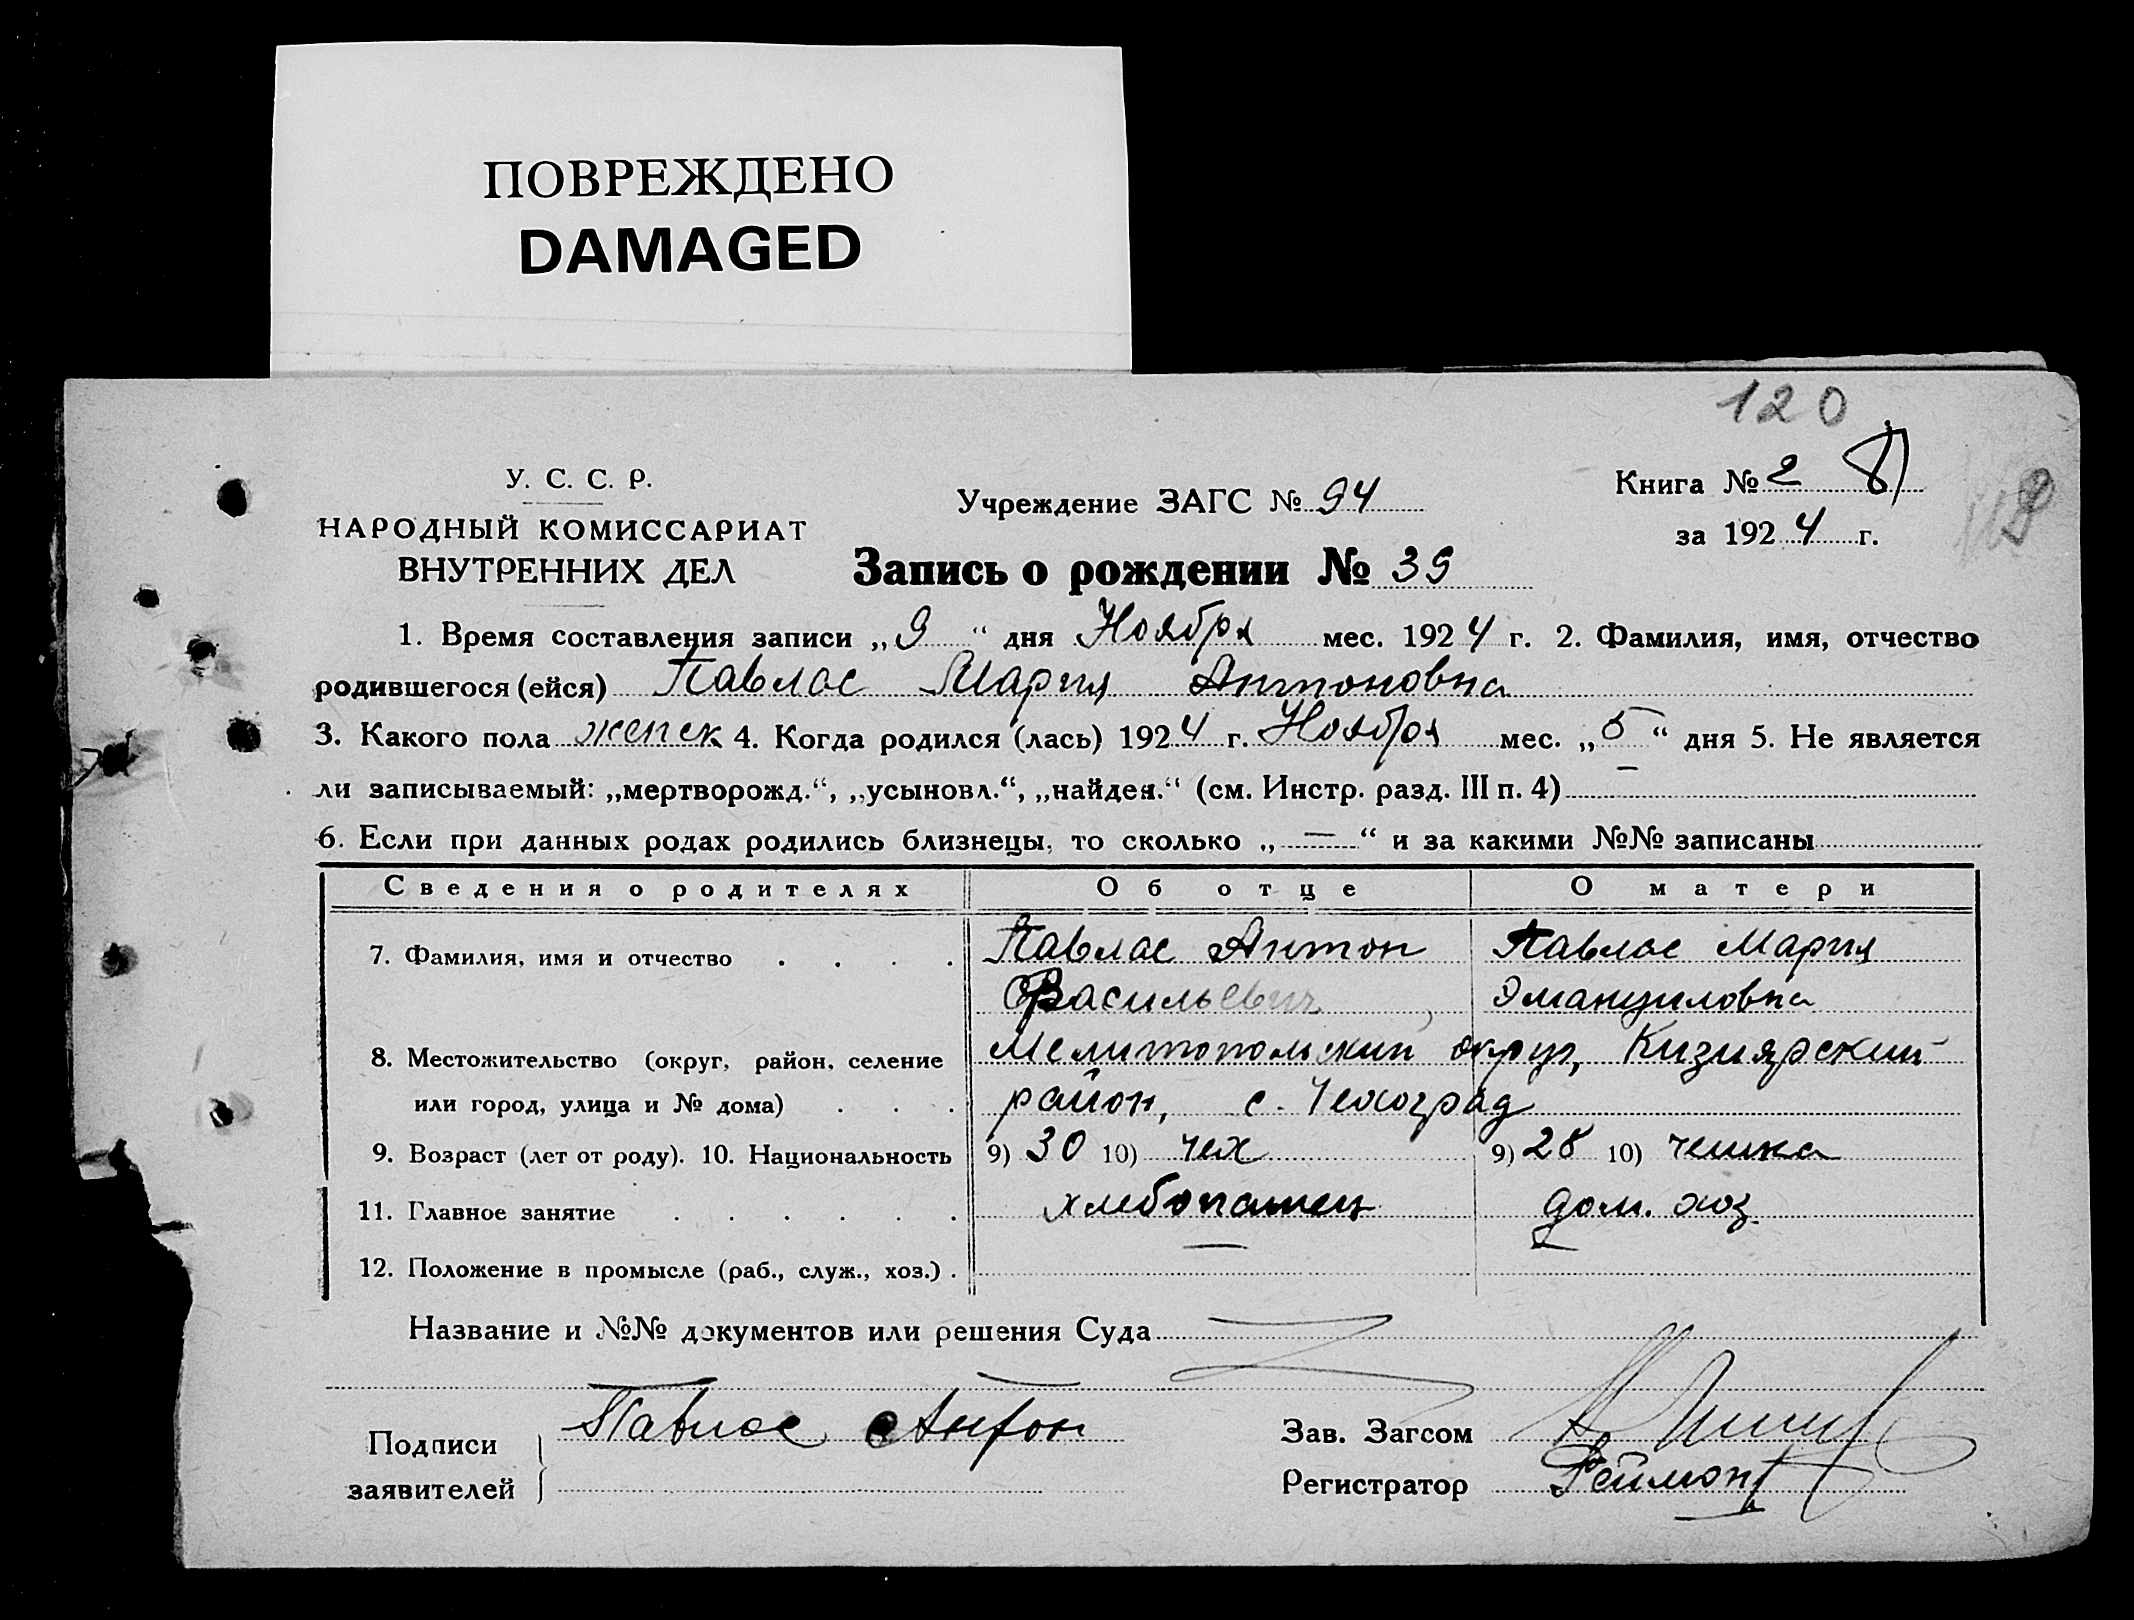 ПОВРЕЖДЕНО
DAMAGED
120
У. С. С. Р.
НАРОДНЫЙ КОМИССАРИАТ
ВНУТРЕННИХ ДЕЛ
Учреждение ЗАГС № 94
Книга № 2
за 1924 г.
Запись о рождении № 39
1. Время составления записи „9“ дня Ноября мес. 1924 г. 2. Фамилия, имя, отчество
родившегося (ейся) Павлас Мария Антоновна
3. Какого пола женск 4. Когда родился (лась) 1924 г. Ноября мес. „5“ дня 5. Не является
ли записываемый: „мертворожд.“, „усыновл.“, „найден.“ (см. Инстр. разд. III п. 4) —
6. Если при данных родах родились близнецы, то сколько „—“ и за какими №№ записаны
Сведения о родителях Об отце О матери
7. Фамилия, имя и отчество Павлас Антон Павлас Мария
Васильевич Эмануиловна
8. Местожительство (округ, район, селение Мелитопольский округ, Кизиярский
или город, улица и № дома) район, с. Чехоград
9. Возраст (лет от роду). 10. Национальность 9) 30 10) чех 9) 28 10) чешка
11. Главное занятие хлебопашец дом. хоз.
12. Положение в промысле (раб., служ., хоз.) — —
Название и №№ документов или решения Суда
Подписи Павлас Антон Зав. Загсом
заявителей Регистратор